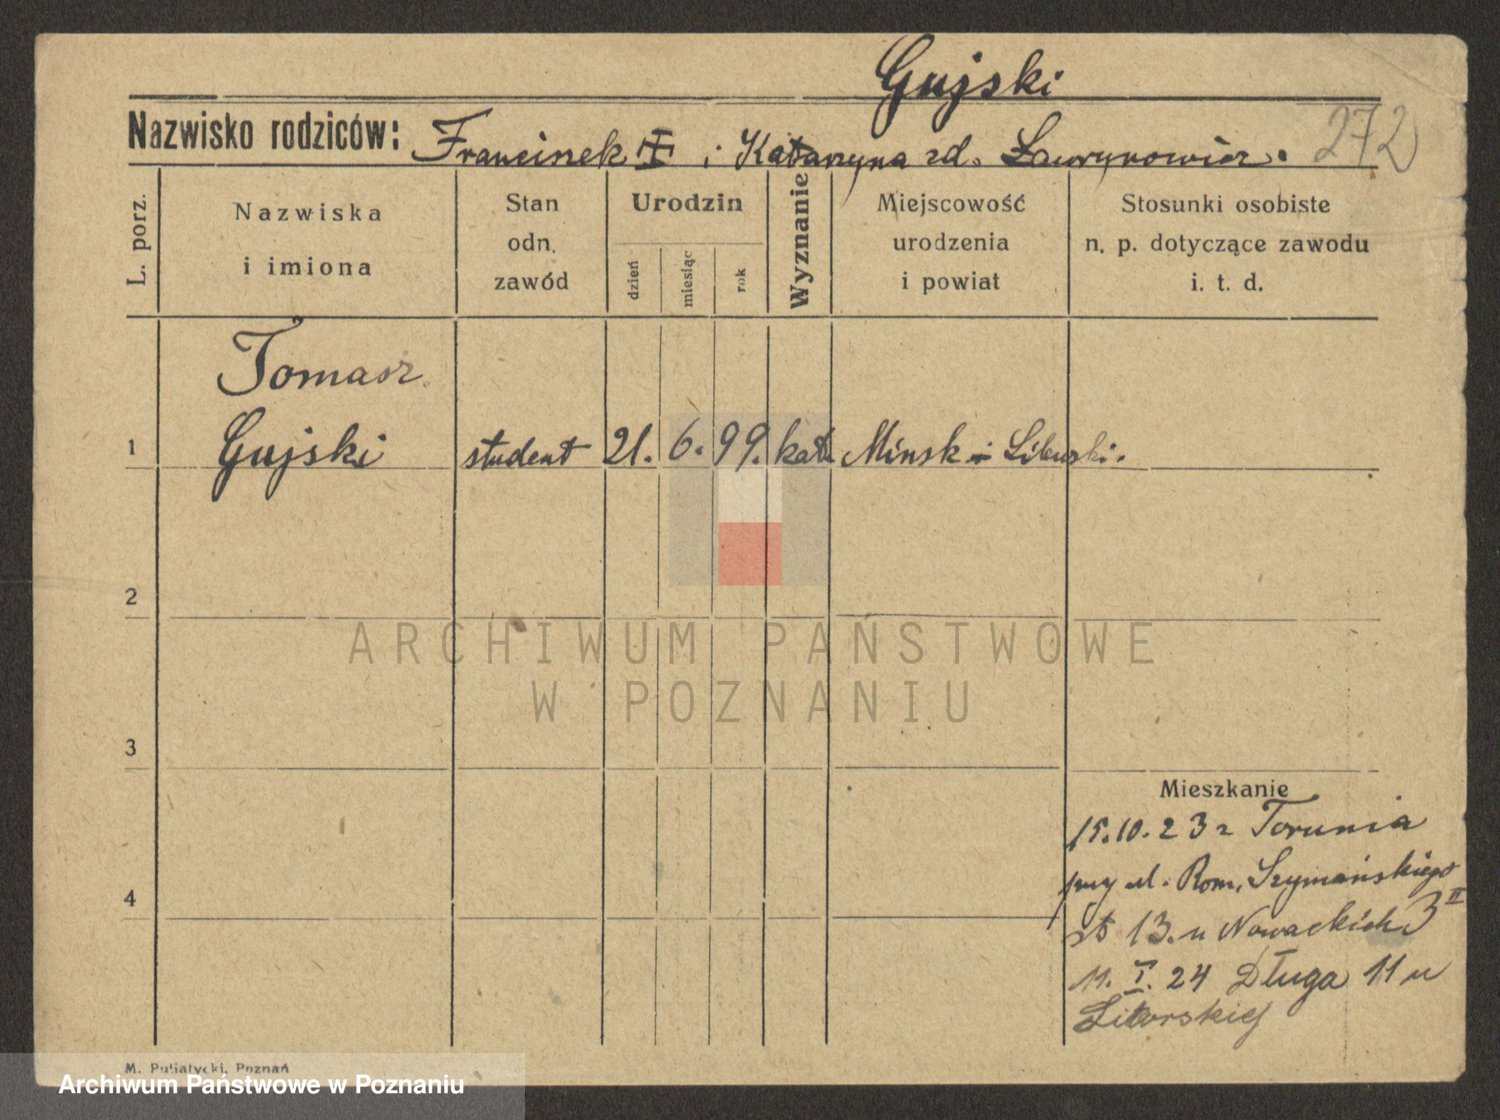 Gujski
Nazwisko rodziców: Francisek i Katarzyna zd. Ławrynowicz. 272
L. porz.
Nazwiska
i imiona
Stan
odn.
zawód
Urodzin
dzień
miesiąc
rok
Wyznanie
Miejscowość
urodzenia
i powiat
Stosunki osobiste
n. p. dotyczące zawodu
i. t. d.
Tomasz
1 Gujski student 21. 6. 99. kat. Minsk Litewski.
2
ARCHIWUM PAŃSTWOWE
W POZNANIU
3
Mieszkanie
15.10.23 z Torunia
przy ul. Rom. Szymańskiego
13. u Nowackich 3 II
4
11. I. 24 Długa 11 u
M. Putiatycki, Poznań
Archiwum Państwowe w Poznaniu